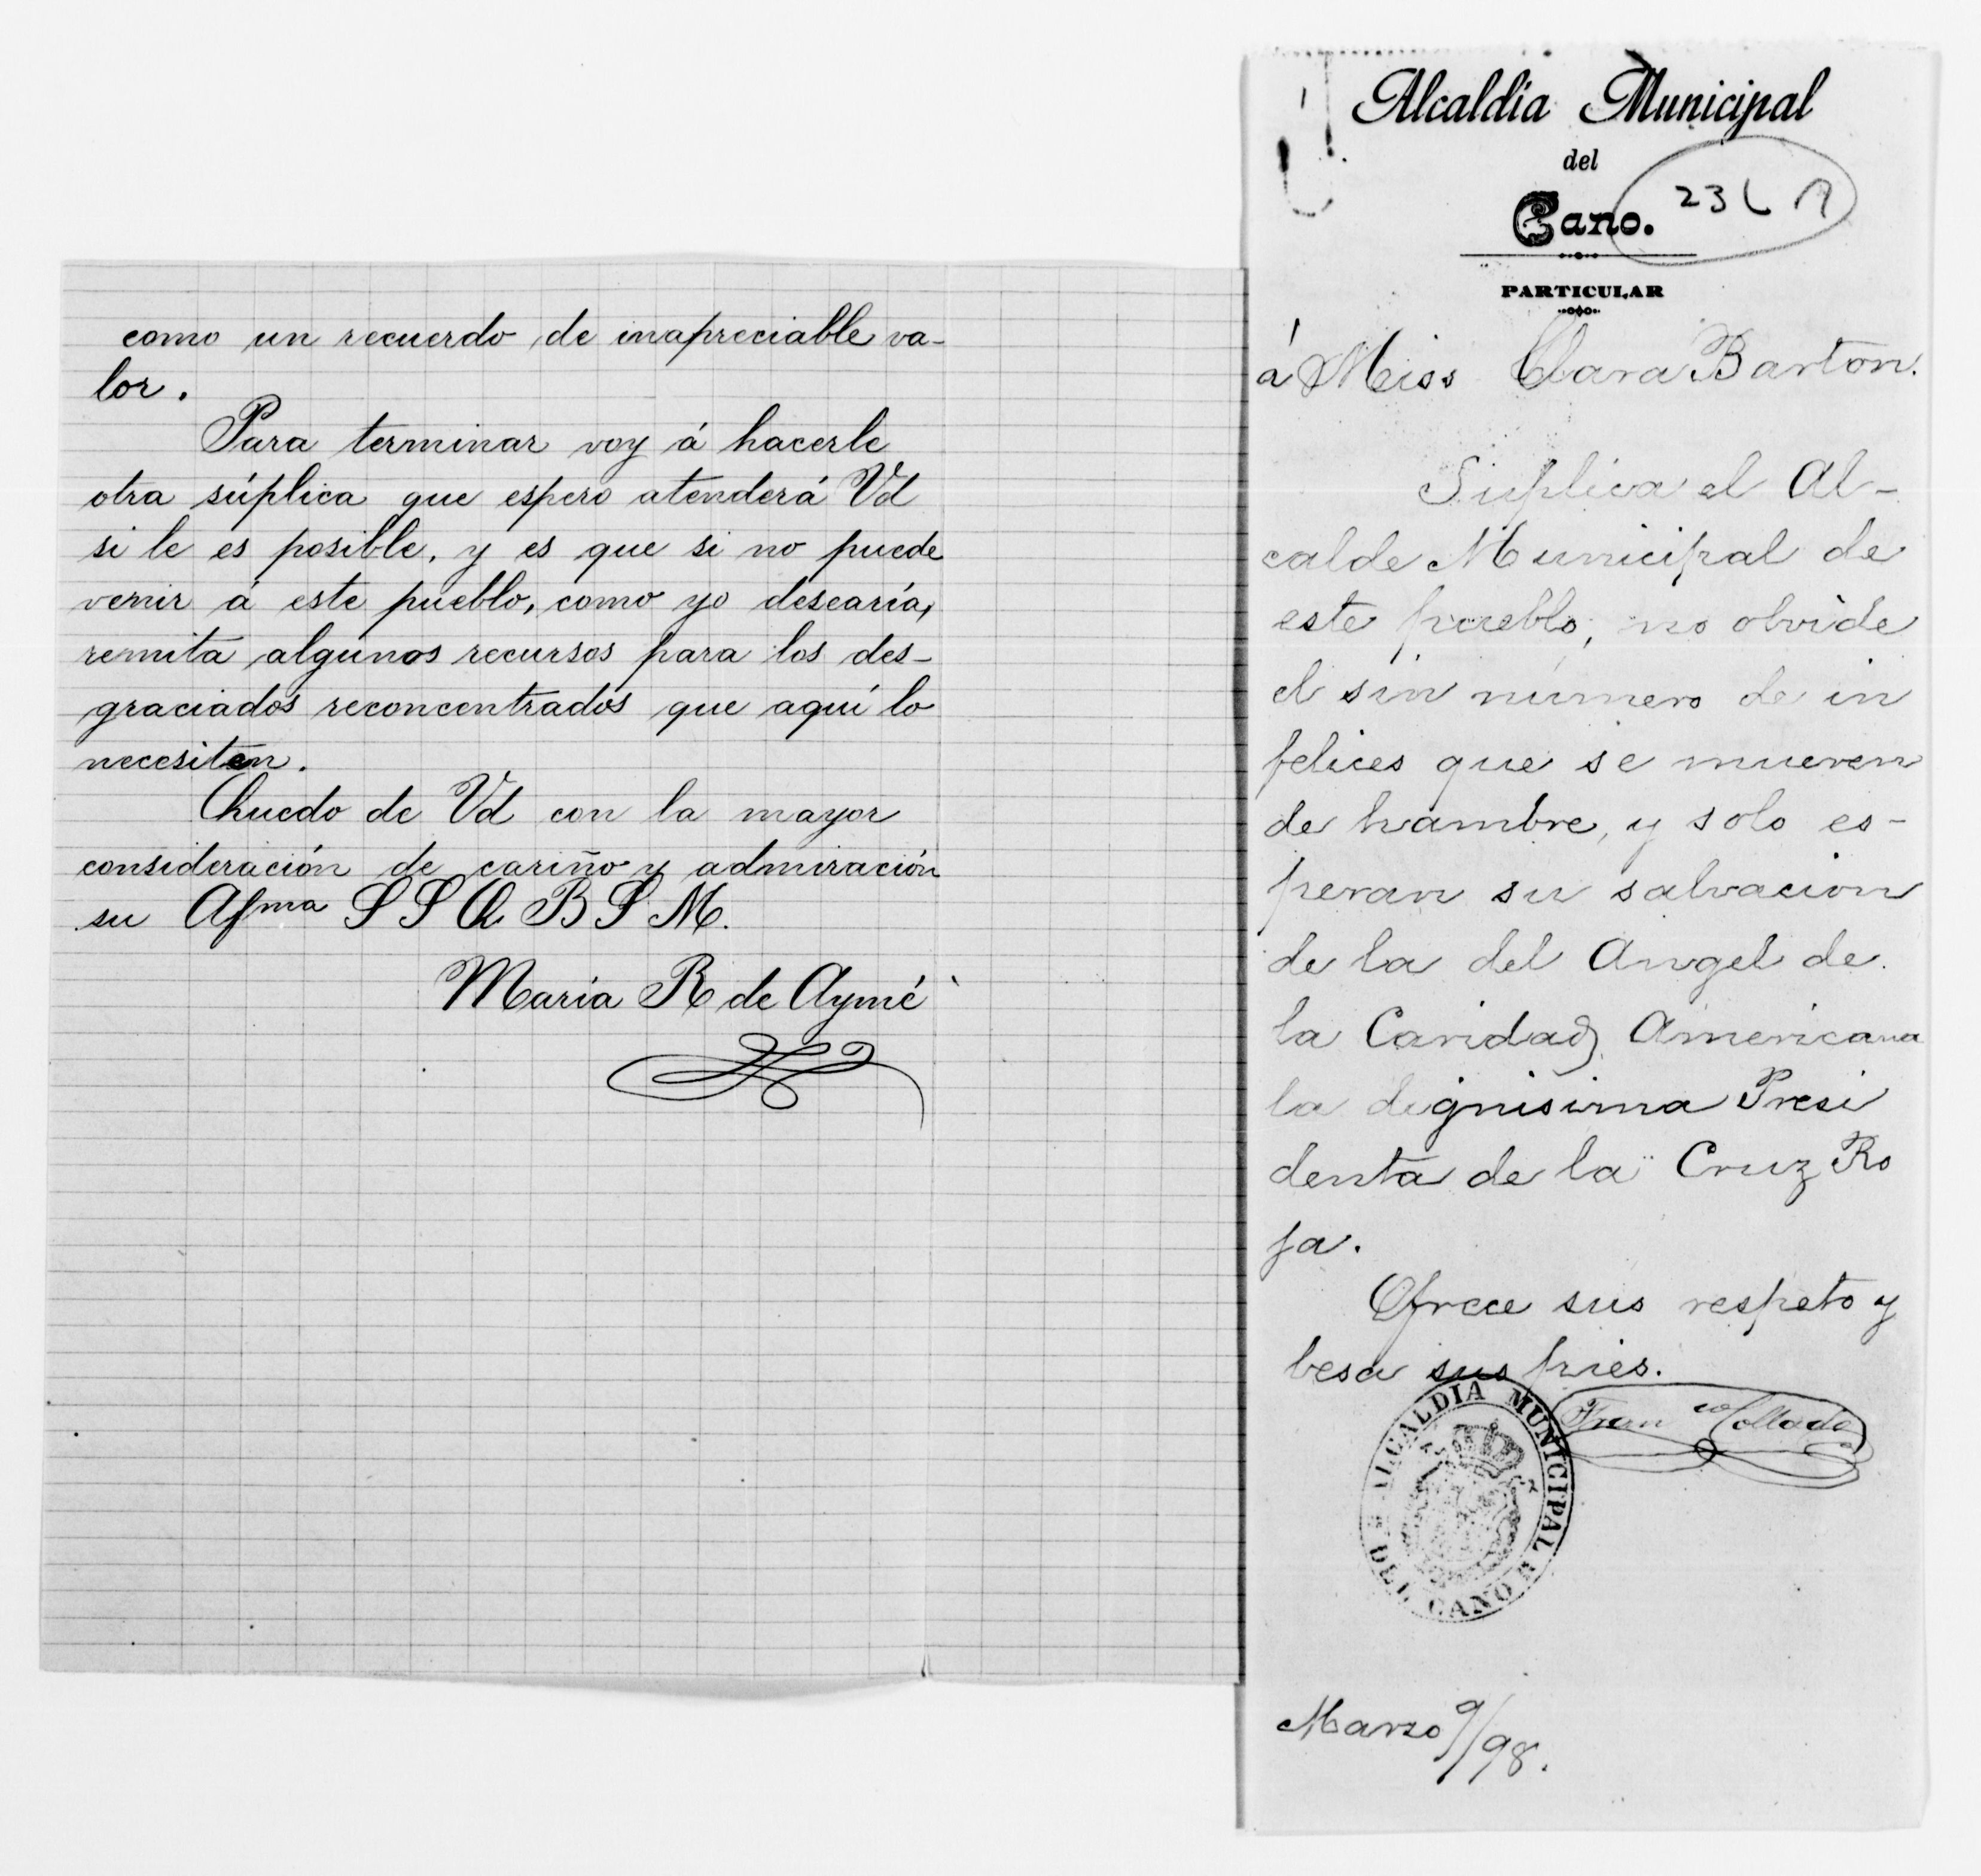 como un recuerdo de inapreciable va-
lor.
Para terminar voy á hacerle
otra súplica que espero atenderá Vd
si le es posible, y es que si no puede
venir á este pueblo, como yo desearía,
remita algunos recursos para los des-
graciados reconcentrados que aquí lo
necesiten.
Quedo de Vd con la mayor
consideración de cariño y admiración
su Afma S S Q B S M.
Maria R de Aymé
Alcaldía Municipal
del
Cano.
PARTICULAR
á Miss Clara Barton.
Suplica el Al-
calde Municipal de
este pueblo, no olvide
el sin número de in
felices que se mueren
de hambre, y solo es-
peran su salvacion
de la del Angel de
la Caridad Americana
la dignisima Presi
denta de la Cruz Ro
ja.
Ofrece sus respeto y
besa sus pies.
Franco Collado
ALCALDIA MUNICIPAL
DEL CANO
Marzo 9/98.